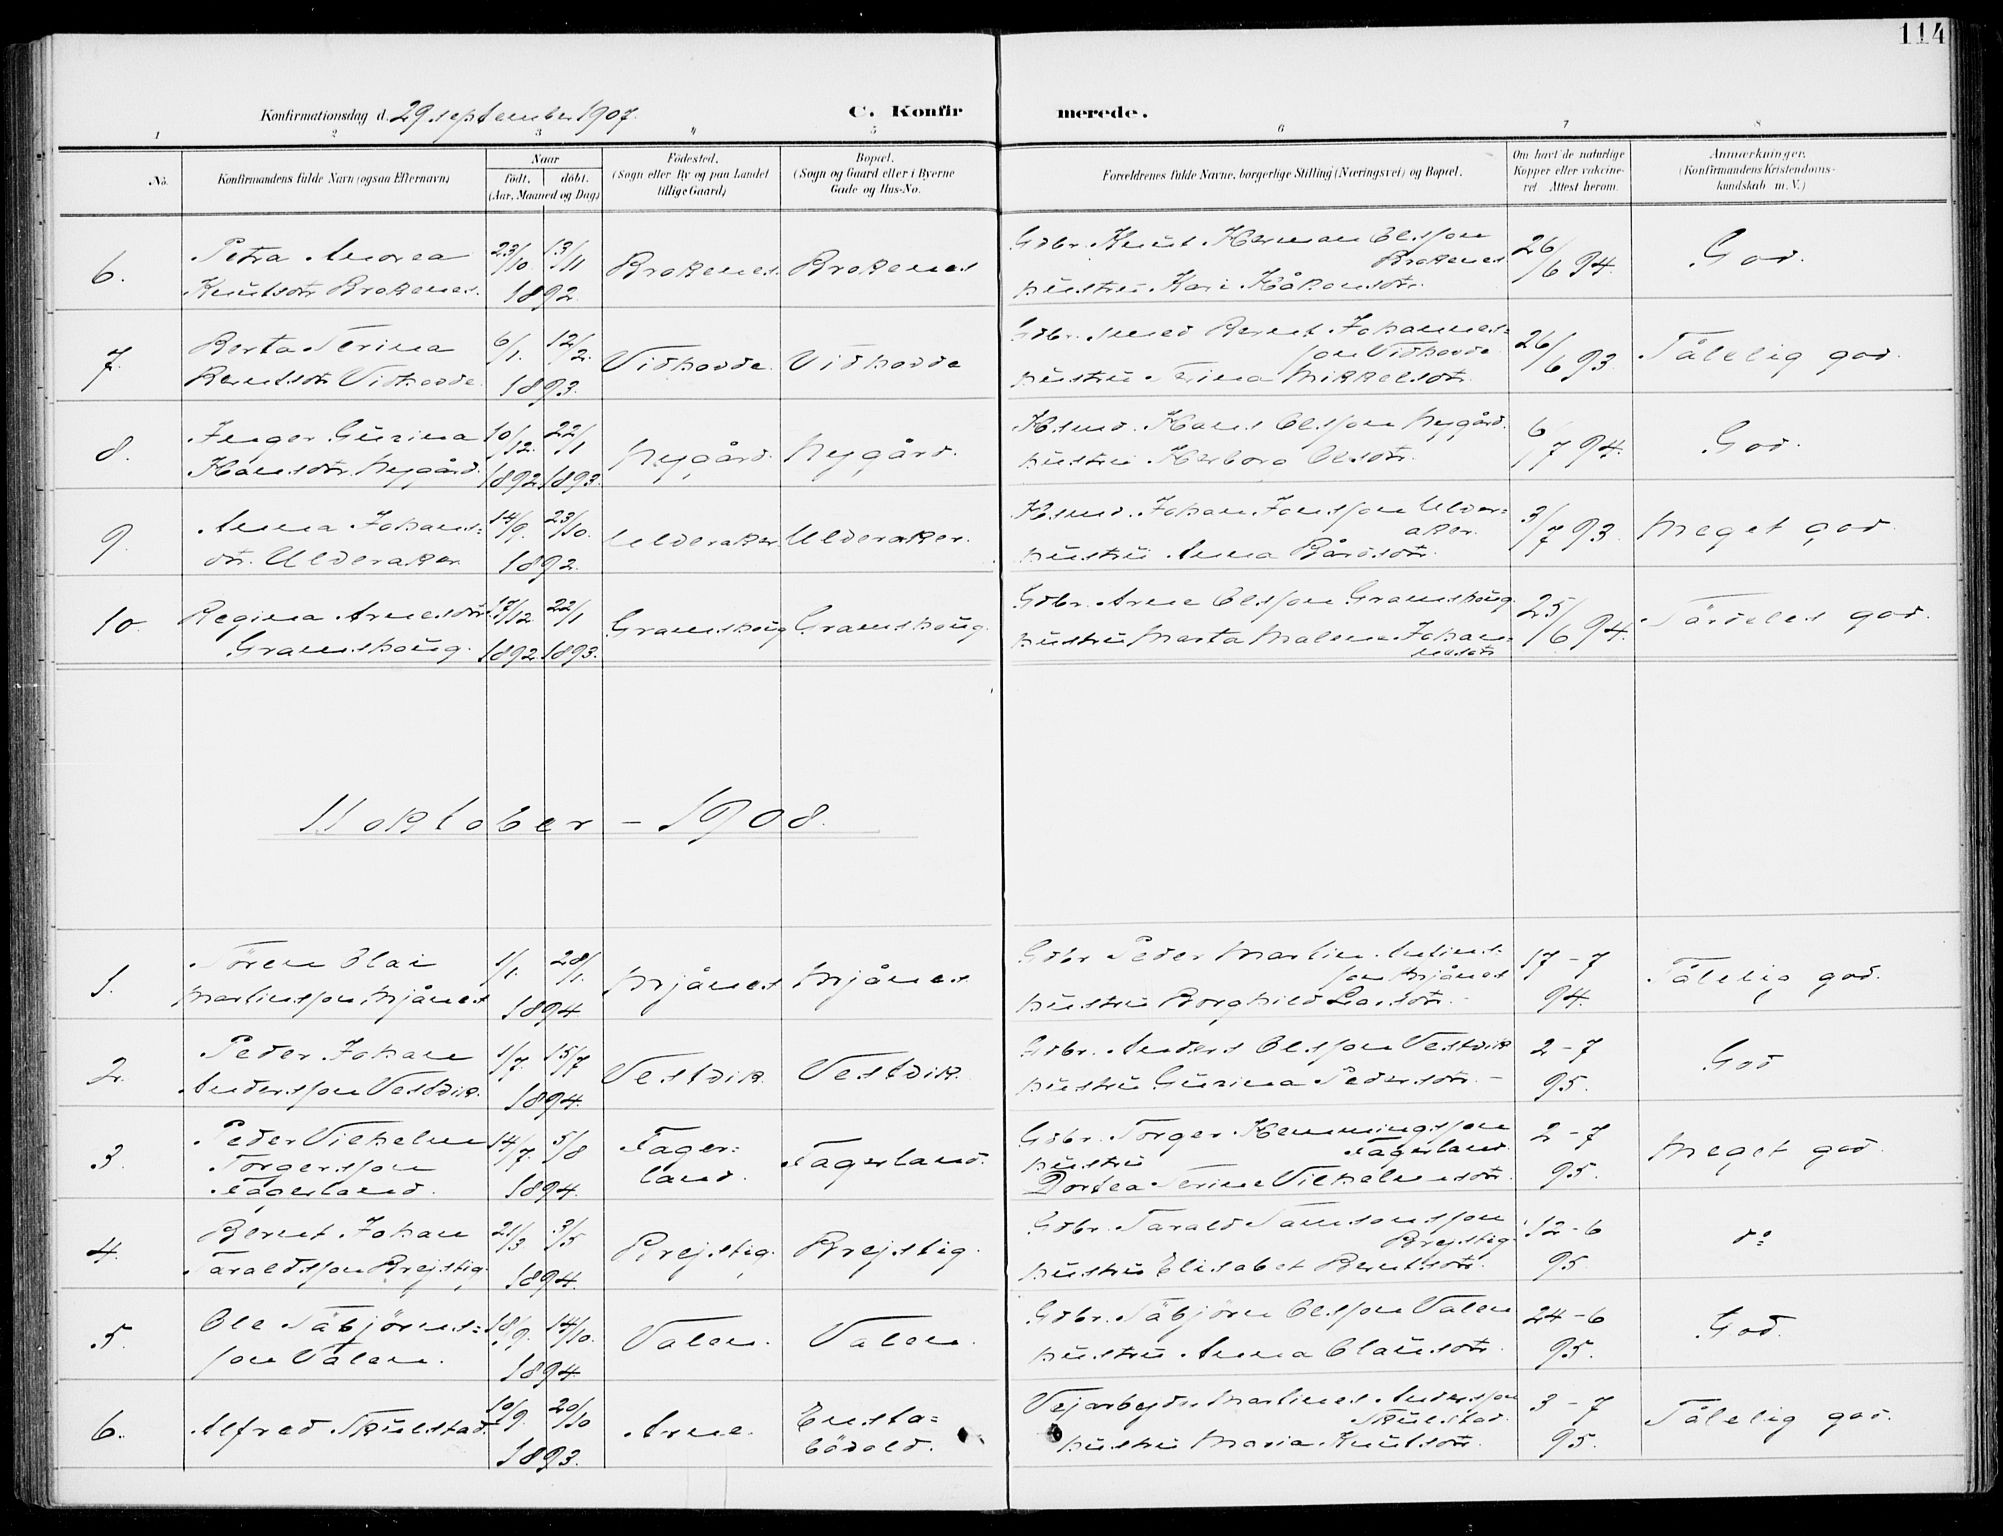 114
Konfirmationsdag d. 29 september 1907.
C. Konfirmerede.
1 2 3 4 5 6 7 8
No.
Konfirmandens fulde Navn (ogsaa Efternavn)
Naar
født, døbt.
(Aar, Maaned og Dag)
Fødested.
(Sogn eller By og paa Landet
tillige Gaard)
Bopæl.
(Sogn og Gaard eller i Byerne
Gade og Hus-No.
Forældrenes fulde Navne, borgerlige Stilling (Næringsvei) og Bopæl.
Om havt de naturlige
Kopper eller vakcine-
ret Attest herom.
Anmærkninger.
(Konfirmandens Kristendoms-
kundskab m. V.)
6. Petra Andrea
Knutsdtr Brekenes.
23/10. 13/11
1892.
Brekenes. Brekenes
Gdbr. Knut Herman Olsson
Brekenes
hustru Kari Håkensdtr.
26/6 94.
God.
7. Berta Serina
Berentsdtr Vidhovde.
6/1. 12/2.
1893.
Vidhovde. Vidhovde
Gdbr. Berent Johannes=
son Vidhovde.
hustru Serina Mikkelsdtr.
26/6 93.
Tålelig god.
8. Inger Gurina
Hansdtr. Nygård.
10/12. 22/1
1892 1893.
Nygård. Nygård.
Hsmd. Hans Olsson Nygård.
hustru Herborg Olsdtr.
6/7 94.
God.
9. Anna Johans=
dtr. Ulderaker
14/9. 23/10.
1892.
Ulderaker. Ulderaker.
Hsmd. Johan Jonsson Ulder=
aker.
hustru Anna Bårdsdtr.
3/7 93.
Meget god.
10. Regina Arnesdtr.
Gramshaug.
17/12 22/1
1892 1893.
Gramshaug Gramshaug.
Gdbr. Arne Olsson Gramshaug.
hustru Marta Malena Johan=
nesdtr
25/6 94.
Særdeles god.
11 oktober - 1908.
1. Sören Olai
Martinsson Mjånes
1/1. 28/1.
1894.
Mjånes Mjånes
Gdbr Peder Martin
son Mjånes
hustru Borghild Larsdtr.
17-7
94.
Tålelig god.
2. Peder Johan
Andersson Vestvik.
1/7. 15/7
1894.
Vestvik. Vestvik.
Gdbr. Anders Olsson Vestvik
hustru Gurina Pedersdtr.
2-7
95.
God
3. Peder Vilhelm
Torgersson
Fagerland.
14/7. 5/8
1894.
Fager=
land.
Fagerland.
Gdbr. Torger Hemmingsson
hustru Fagerland.
Dortea Serine Vilhelmsdtr.
2-7
95.
Meget god.
4. Berent Johan
Taraldsson Brejstig.
21/3 3/5
1894.
Brejstig. Brejstig.
Gdbr. Tarald Samsonsson
Brejstig
hustru Elisabet Berentsdtr.
12-6
95.
do
5. Ole Säbjörns=
son Valen.
18/9. 14/10.
1894
Valen. Valen.
Gdbr. Säbjörn Olsson Valen
hustru Anna Clausdtr.
24-6
95.
God.
6. Alfred Skulstad.
10/9. 20/10
1893.
Arne. Ensta=
bödald.
Vejarbejder Martines Andersson
Skulstad.
hustru Maria Knutsdtr.
3-7
95.
Tålelig god.